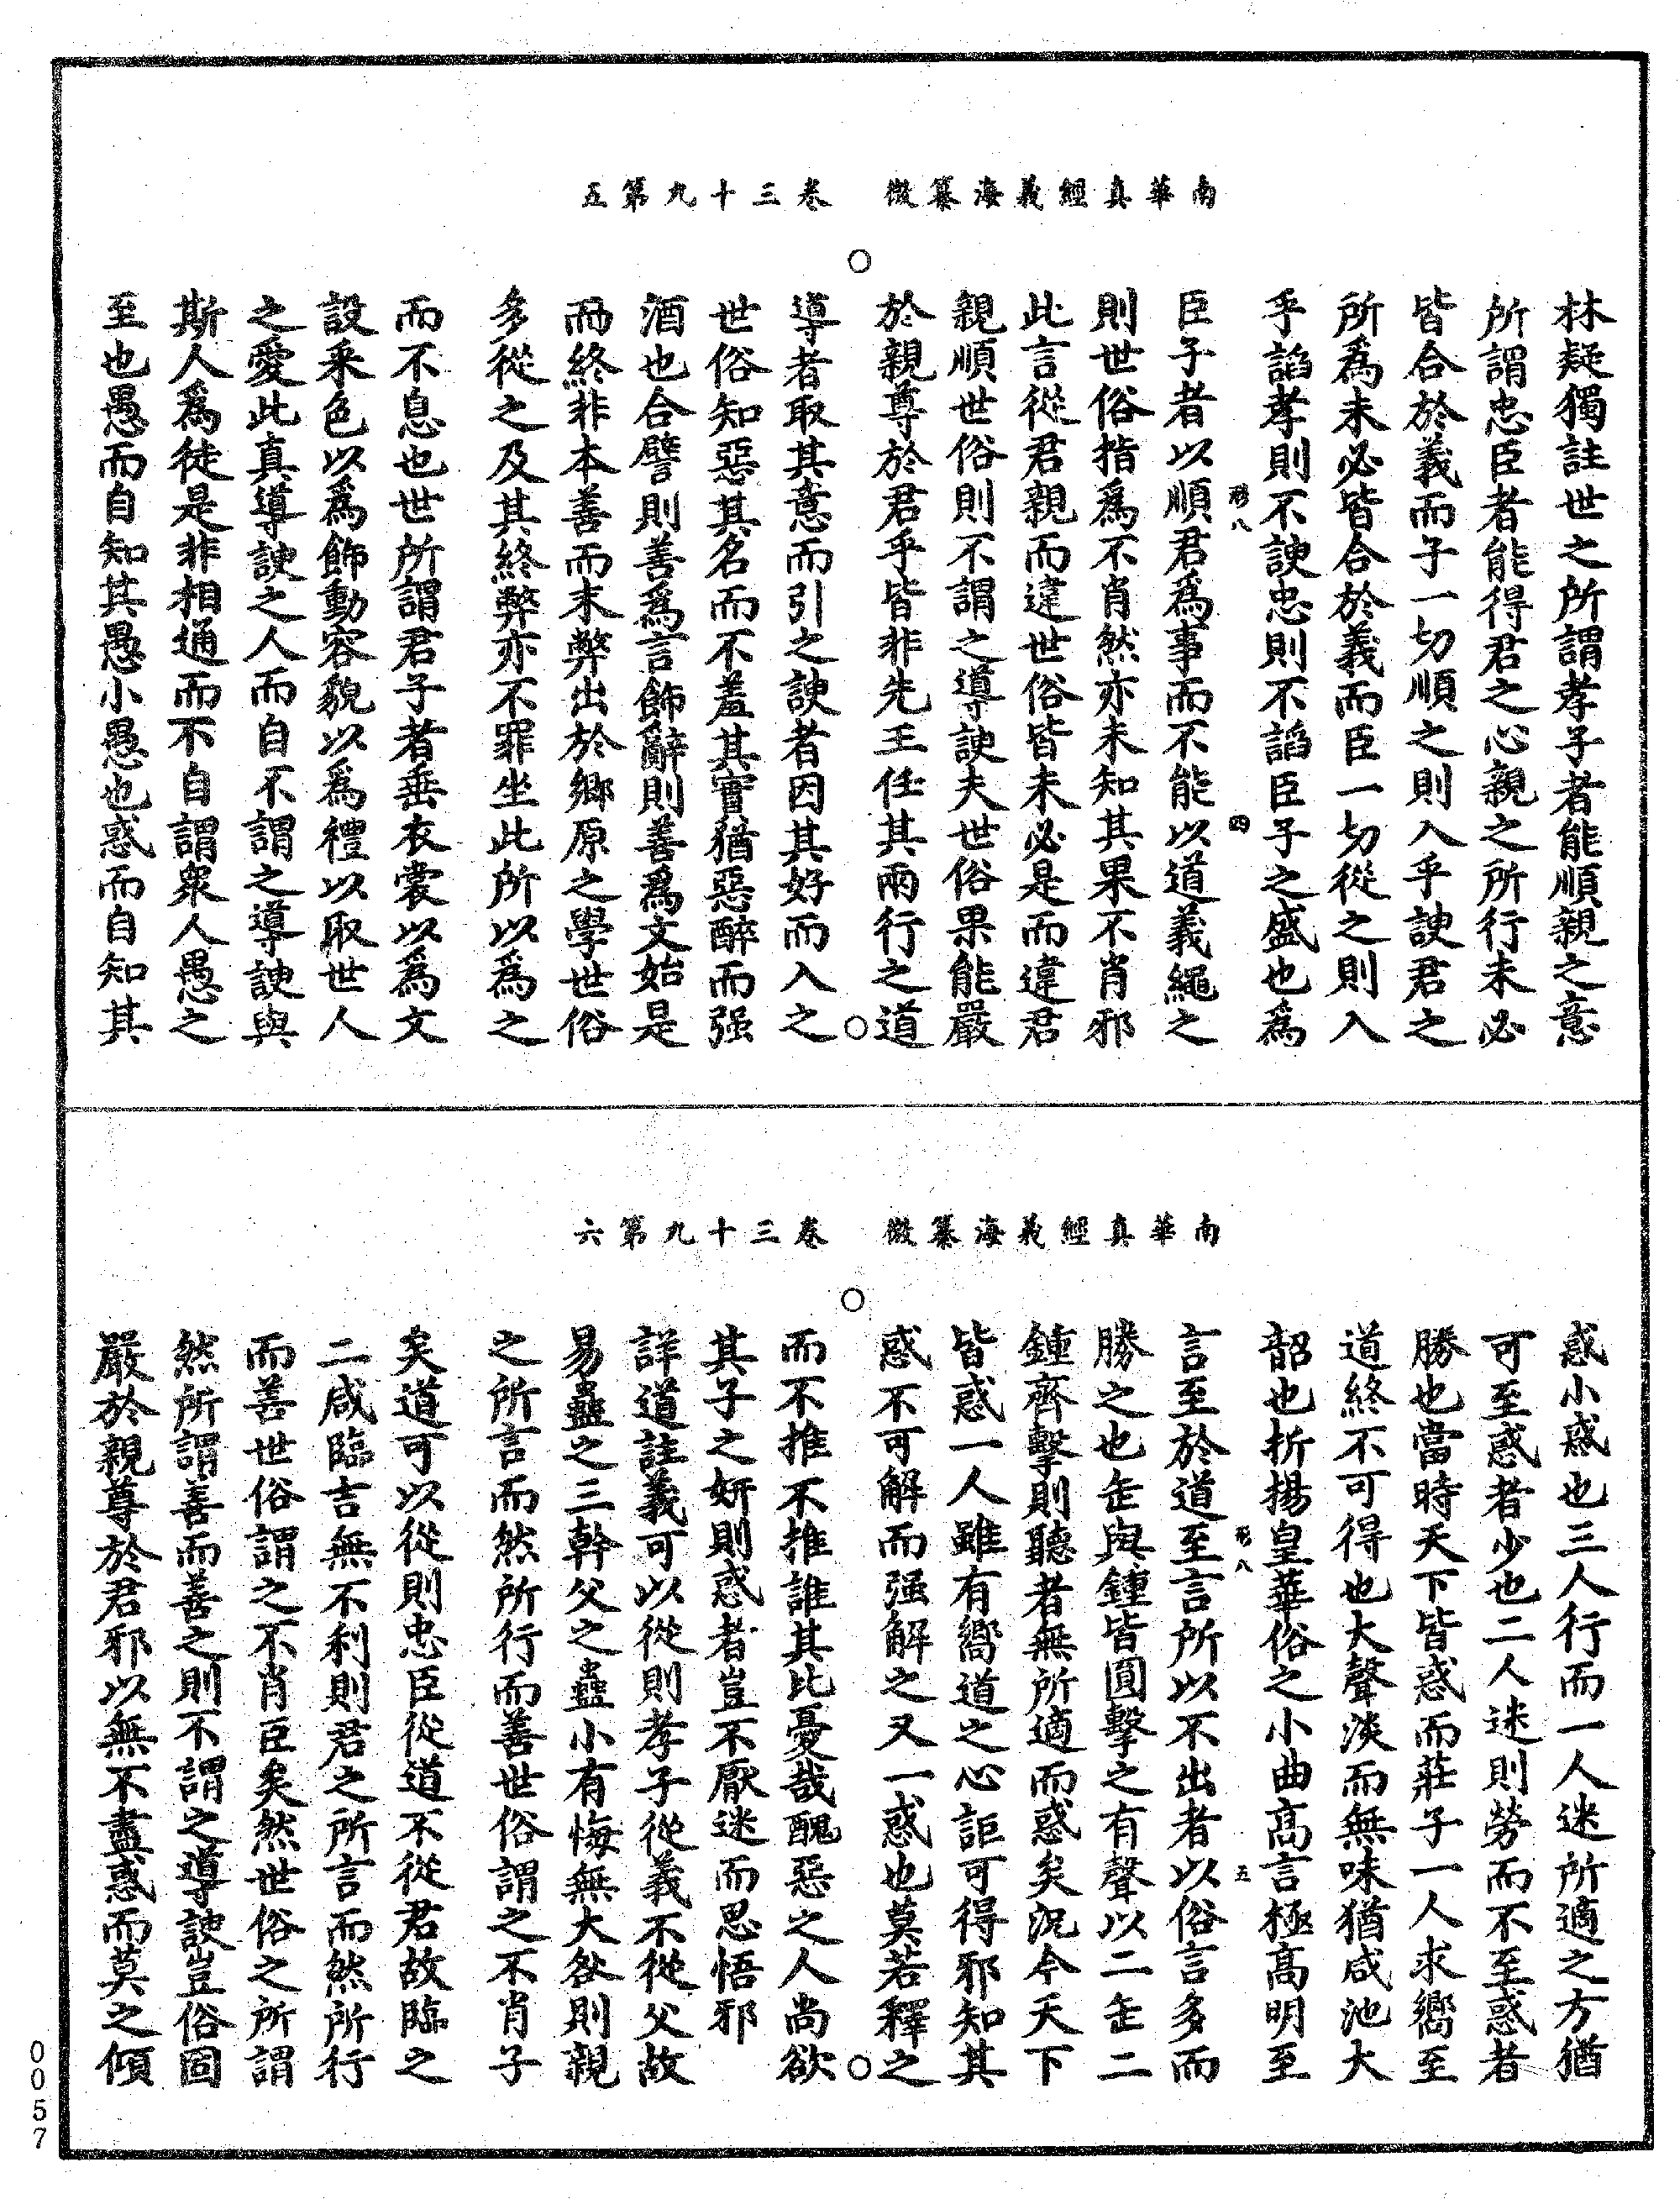 南華真經義海纂微　卷三十九第五
林疑獨註世之所謂孝子者能順親之意
所謂忠臣者能得君之心親之所行未必
皆合於義而子一切順之則入乎諛君之
所爲未必皆合於義而臣一切從之則入
乎諂孝則不諛忠則不諂臣子之盛也爲
形八　四
臣子者以順君爲事而不能以道義繩之
則世俗指爲不肖然亦未知其果不肖邪
此言從君親而違世俗皆未必是而違君
親順世俗則不謂之導諛夫世俗果能嚴
於親尊於君乎皆非先王任其兩行之道
導者取其意而引之諛者因其好而入之
世俗知惡其名而不羞其實猶惡醉而强
酒也合譬則善爲言飾辭則善爲文始是
而終非本善而末弊出於鄉原之學世俗
多從之及其終弊亦不罪坐此所以爲之
而不息也世所謂君子者垂衣裳以爲文
設采色以爲飾動容貌以爲禮以取世人
之愛此真導諛之人而自不謂之導諛與
斯人爲徒是非相通而不自謂衆人愚之
至也愚而自知其愚小愚也惑而自知其
南華真經義海纂微　卷三十九第六
惑小惑也三人行而一人迷所適之方猶
可至惑者少也二人迷則勞而不至惑者
勝也當時天下皆惑而莊子一人求嚮至
道終不可得也大聲淡而無味猶咸池大
韶也折揚皇華俗之小曲高言極高明至
形八　五
言至於道至言所以不出者以俗言多而
勝之也缶與鍾皆圓擊之有聲以二缶二
鍾齊擊則聽者無所適而惑矣況今天下
皆惑一人雖有嚮道之心詎可得邪知其
惑不可解而强解之又一惑也莫若釋之
而不推不推誰其比憂哉醜惡之人尚欲
其子之妍則惑者豈不厭迷而思悟邪
詳道註義可以從則孝子從義不從父故
易蠱之三幹父之蠱小有悔無大咎則親
之所言而然所行而善世俗謂之不肖子
矣道可以從則忠臣從道不從君故臨之
二咸臨吉無不利則君之所言而然所行
而善世俗謂之不肖臣矣然世俗之所謂
然所謂善而善之則不謂之導諛豈俗固
嚴於親尊於君邪以無不盡惑而莫之傾
0057